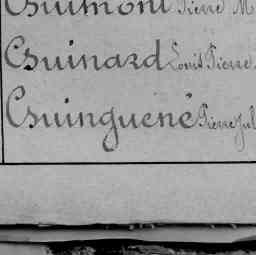 Guimont Pierre M
Guinard Louis Pierre
Guinguené Pierre Jul